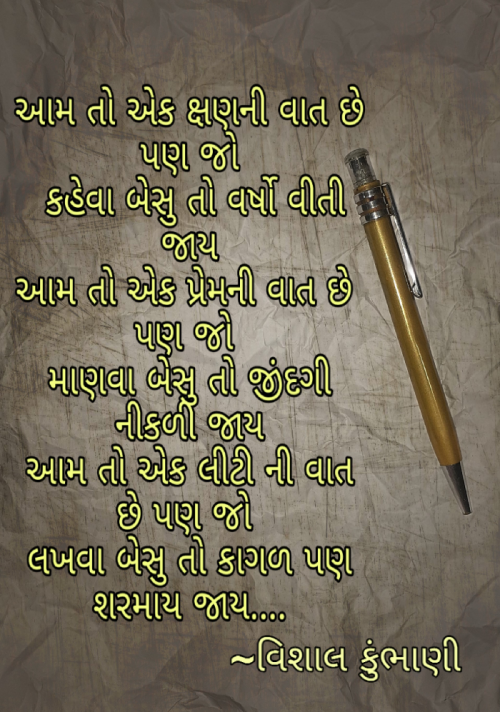 આમ તો એક ક્ષણની વાત છે
પણ જો
કહેવા બેસુ તો વર્ષો વીતી
જાય
આમ તો એક પ્રેમની વાત છે
પણ જો
માણવા બેસુ તો જીંદગી
નીકળી જાય
આમ તો એક લીટી ની વાત
છે પણ જો
લખવા બેસુ તો કાગળ પણ
શરમાય જાય....
~વિશાલ કુંભાણી